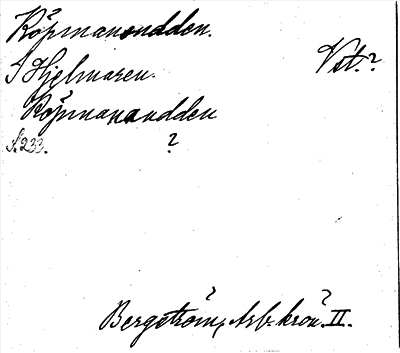 Köpmanaudden.
I Hjelmaren.
Vst.?
Köpmanaudden
s. 233. ?
Bergström, Arb. krön. II.